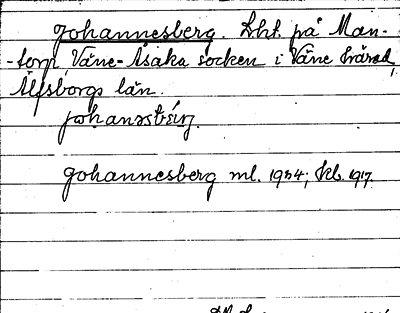 Johannesberg. Lht. på Man-
-torp Väne-Åsaka socken i Väne härad,
Älfsborgs län.
Johannesberg ml. 1934; kb. 1917.